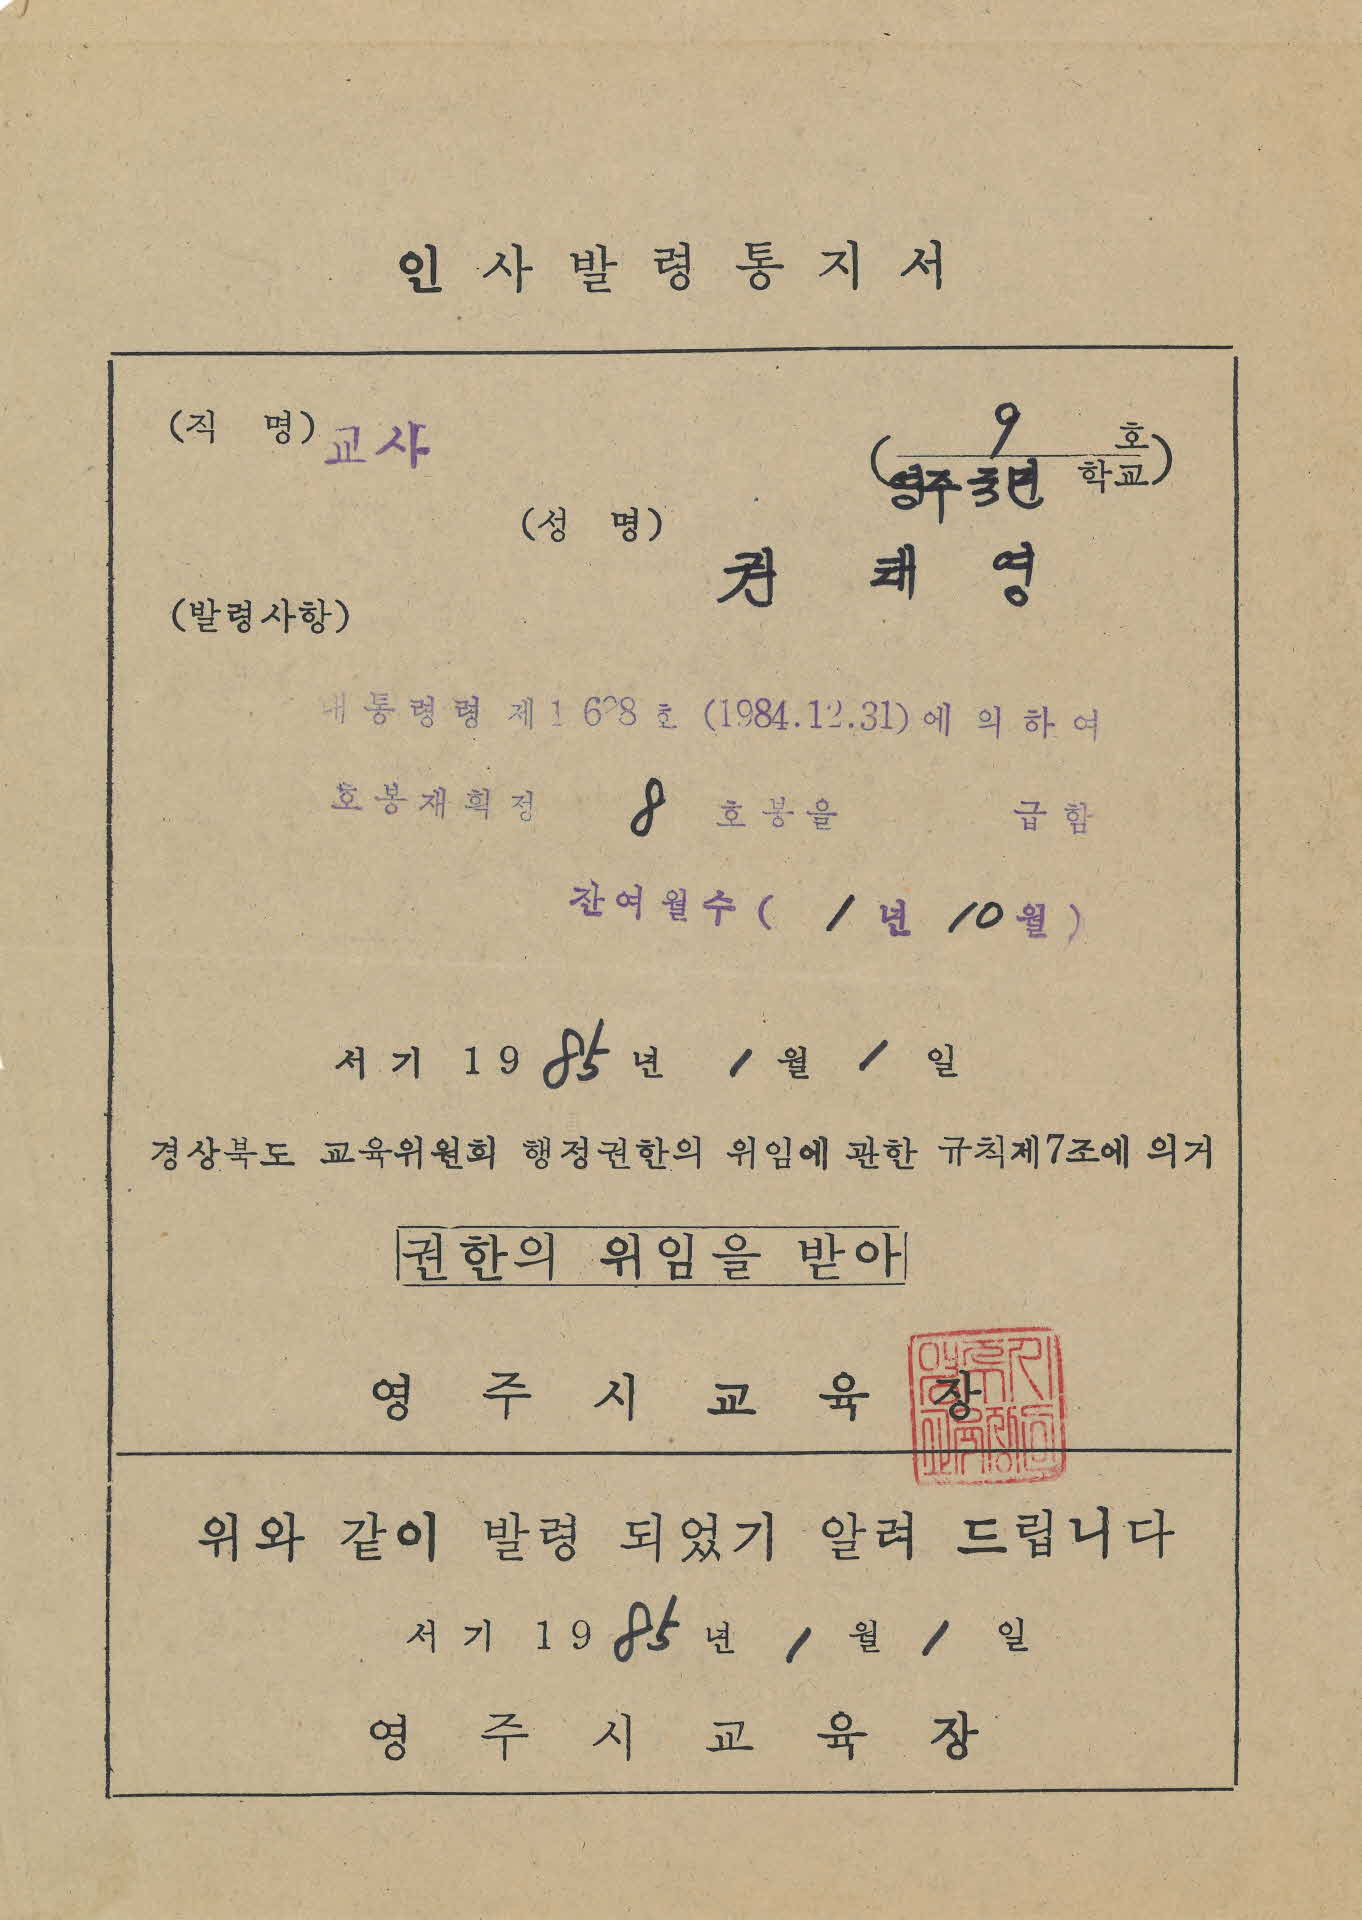 인사발령통지서
(직 명) 교사
9 호
(영주국민 학교)
(성 명)
권 태 영
(발령사항)
대통령령 제1 6 8호 (1984.12.31)에 의하여
호봉재획정 8 호봉을 급함
잔여월수( 1년 10월)
서기 1985년 1월 1일
경상북도 교육위원회 행정권한의 위임에 관한 규칙제7조에 의거
권한의 위임을 받아
영주시교육장
위와 같이 발령 되었기 알려 드립니다
서기 1985년 1월 1일
영주시교육장